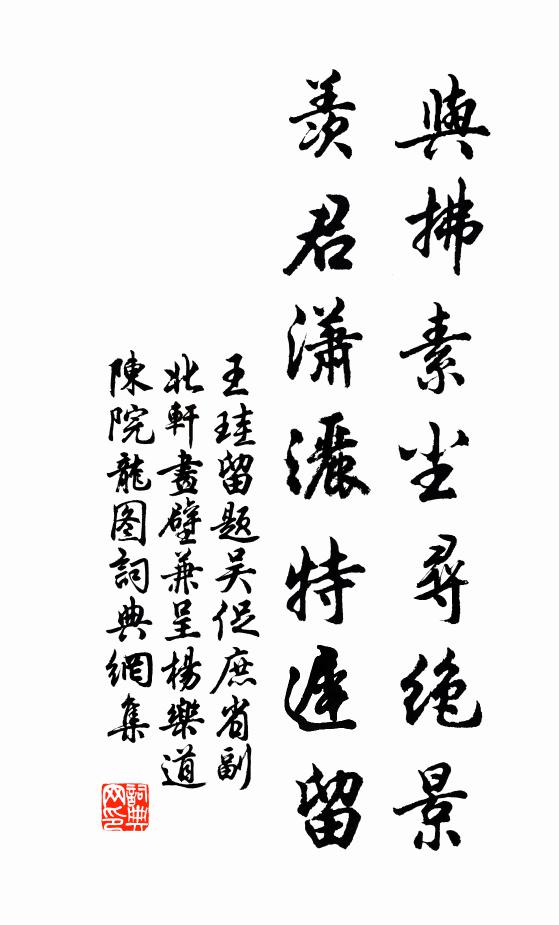 與拂素尘尋绝景
羨君瀟灑特遲留
王珪留题吴促庶省副
北軒畫壁兼呈楊樂道
陳院龍图詞典網集
詞典
网印